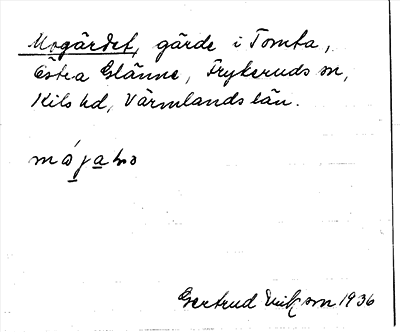 Mogärdet, gärde i Tomta,
Östra Glänne, Frykeruds sn,
Kils hd, Värmlands län.
Gertrud Erikson 1936